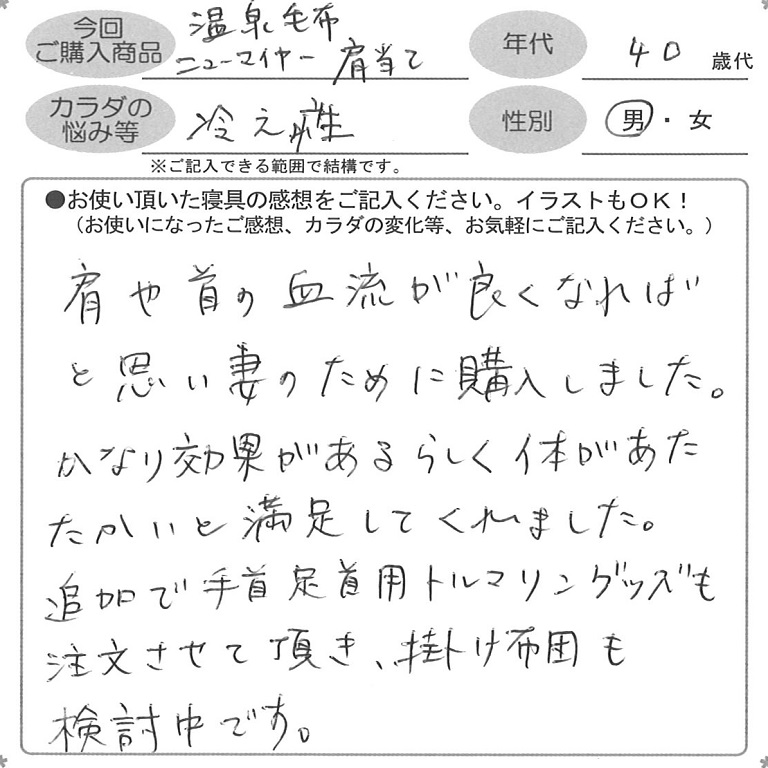 今回
ご購入商品
温泉毛布
ニューマイヤー 肩当て
年代
40 歳代
カラダの
悩み等
冷え症
性別
男・女
※ご記入できる範囲で結構です。
●お使い頂いた寝具の感想をご記入ください。イラストもOK！
（お使いになったご感想、カラダの変化等、お気軽にご記入ください。）
肩や首の血流が良くなれば
と思い妻のために購入しました。
かなり効果があるらしく体があた
たかいと満足してくれました。
追加で手首足首用トルマリングッズも
注文させて頂き、掛け布団も
検討中です。